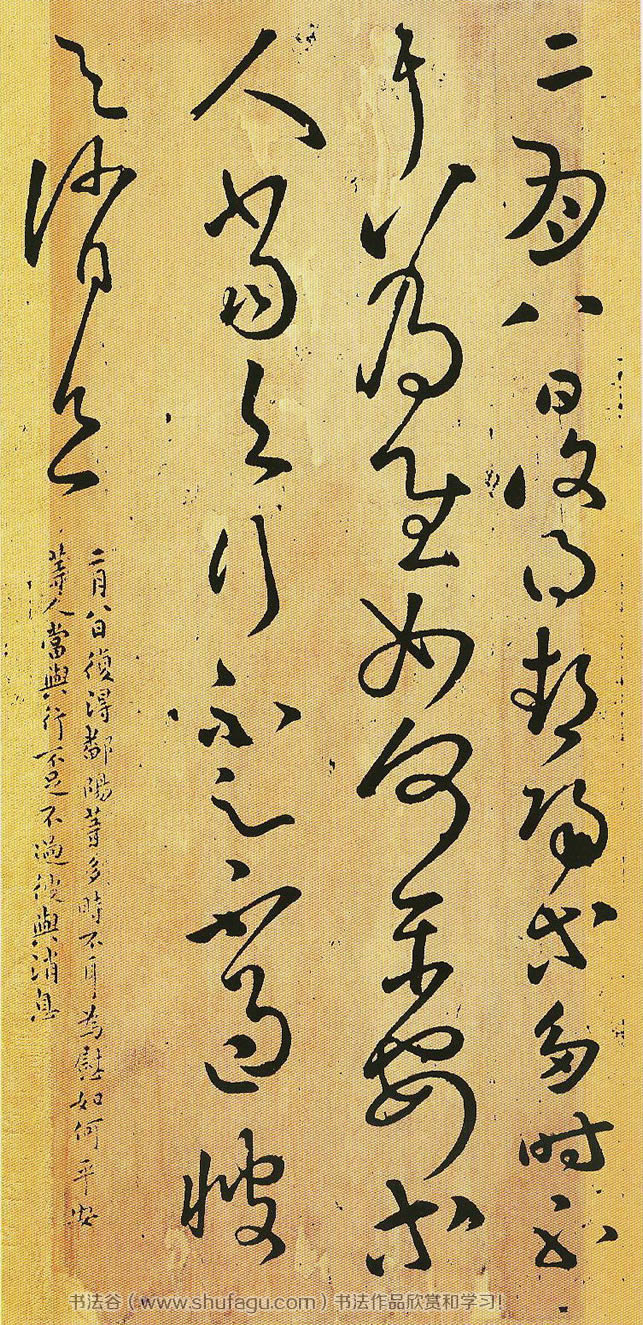 二月八日復得鄱陽等多時不
耳為慰如何平安等
人當與行不足不過彼
與消息
二月八日偵得鄱陽等多時不耳為慰如何平安
等人當與行不足不過彼與消息
书法谷(www.shufagu.com)书法作品欣赏和学习!